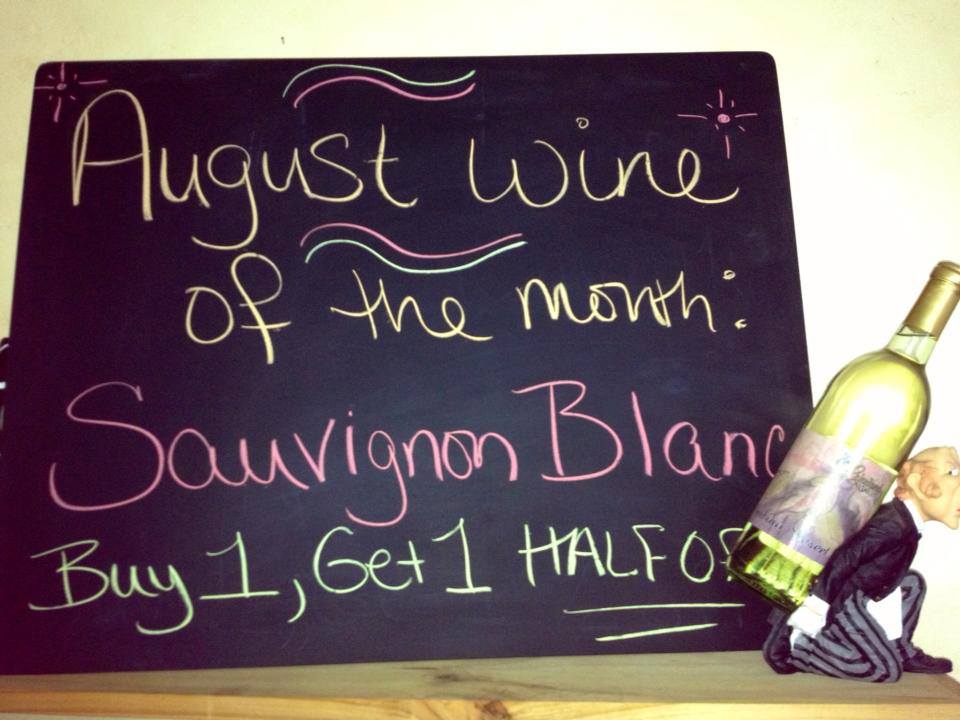 August wine
of the month:
Sauvignon Blanc
Buy 1, Get 1 HALF OF